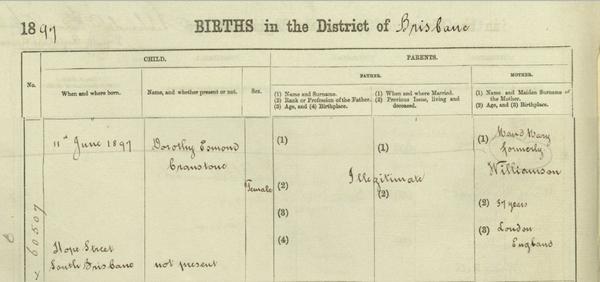 1897 BIRTHS in the District of Brisbane
CHILD. PARENTS.
No. When and where born. Name, and whether present or not. Sex.
FATHER. MOTHER.
(1) Name and Surname.
(2) Rank or Profession of the Father.
(3) Age, and (4) Birthplace.
(1) When and where Married.
(2) Previous Issue, living and
deceased.
(1) Name and Maiden Surname of
the Mother.
(2) Age, and (3) Birthplace.
11th June 1897 Dorothy Esmond (1) (1) (1) Maud Mary
Cranstone formerly
Female (2) Illegitimate (2) Williamson
(2) 37 years
(3) (3) London
England
(4)
Hope Street
South Brisbane not present
60507